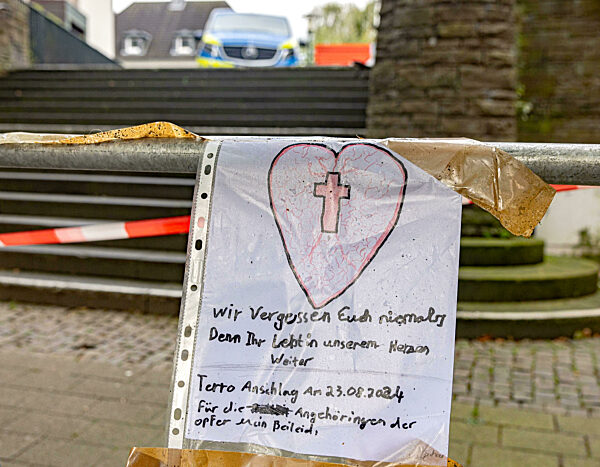 Wir Vergessen Euch niemals
Denn Ihr Lebt in unserem Herzen
Weiter
Terro Anschlag Am 23.08.2024
Für die Angehöringen der
opfer Mein Beileid.